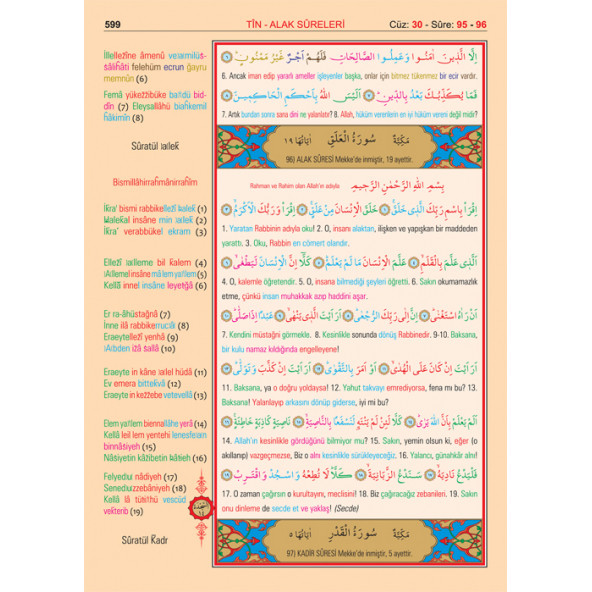 599
TİN - ALAK SÛRELERİ
Cüz: 30 - Sûre: 95 - 96
İllellezîne âmenû veamilüs-
sâliĥâti felehüm ecrun ğayru
memnûn (6)
Femâ yükežžibüke badü bid-
dîn (7) Eleysallâhü biaĥkemil
ĥâkimîn (8)
Sûratül
Bismillâhirraĥmânirraĥîm
(1)
insâne min (2)
verabbükel ekram (3)
(4)
(5)
Kellâ innel insâne leyetğâ (6)
Er ra-âhüstağnâ (7)
İnne ilâ rabbikerrucâ (8)
Eraeytellezî yenhâ (9)
izâ sallâ (10)
Eraeyte in kâne hüdâ (11)
Ev emera bittekvâ (12)
Eraeyte in kežžebe vetevellâ (13)
Elem biennallâhe yerâ (14)
Kellâ leil lem yentehi lenesfeıam
binnâsiyeh (15)
Nâsiyetin kâžibetin (16)
nâdiyeh (17)
Senedüzzebâniyeh (18)
Kellâ lâ vescüd
(19)
Sûratül Kadr
اِلَّا الَّذٖينَ اٰمَنُوا وَعَمِلُوا الصَّالِحَاتِ فَلَهُمْ اَجْرٌ غَيْرُ مَمْنُونٍ ٦
6. Ancak iman edip yararlı ameller işleyenler başka, onlar için bilmez tükenmez bir ecir vardır.
فَمَا يُكَذِّبُكَ بَعْدُ بِالدّٖينِ ٧ اَلَيْسَ اللّٰهُ بِاَحْكَمِ الْحَاكِمٖينَ ٨
7. Artık bundan sonra sana dini ne yalanlatır? 8. Allah, hüküm verenlerin en iyi hüküm vereni değil midir?
سُورَةُ الْعَلَقِ مَكِّيَّة اٰيَاتُهَا ١٩
96) ALAK SÛRESİ Mekke'de inmiştir, 19 ayettir.
بِسْمِ اللّٰهِ الرَّحْمٰنِ الرَّحٖيمِ
Rahman ve Rahim olan Allah'ın adıyla
اِقْرَاْ بِاسْمِ رَبِّكَ الَّذٖى خَلَقَ ١ خَلَقَ الْاِنْسَانَ مِنْ عَلَقٍ ٢ اِقْرَاْ وَرَبُّكَ الْاَكْرَمُ ٣
1. Yaratan Rabbinin adıyla oku! 2. O, insanı alaktan, ilişken ve yapışkan bir maddeden
yarattı. 3. Oku, Rabbin en cömert olandır.
اَلَّذٖى عَلَّمَ بِالْقَلَمِ ٤ عَلَّمَ الْاِنْسَانَ مَا لَمْ يَعْلَمْ ٥ كَلَّا اِنَّ الْاِنْسَانَ لَيَطْغٰى ٦
4. O, kalemle öğretendir. 5. O, insana bilmediği şeyleri öğretti. 6. Sakın okumamazlık
etme, çünkü insan muhakkak azıp haddini aşar.
اَنْ رَاٰهُ اسْتَغْنٰى ٧ اِنَّ اِلٰى رَبِّكَ الرُّجْعٰى ٨ اَرَاَيْتَ الَّذٖى يَنْهٰى ٩ عَبْدًا اِذَا صَلّٰى ١٠
7. Kendini müstağni görmekle. 8. Kesinlikle sonunda dönüş Rabbinedir. 9-10. Baksana,
bir kulu namaz kıldığında engelleyene!
اَرَاَيْتَ اِنْ كَانَ عَلَى الْهُدٰى ١١ اَوْ اَمَرَ بِالتَّقْوٰى ١٢ اَرَاَيْتَ اِنْ كَذَّبَ وَتَوَلّٰى ١٣
11. Baksana, ya o doğru yoldaysa! 12. Yahut takvayı emrediyorsa, fena mı bu? 13.
Baksana! Yalanlayıp arkasını dönüp giderse, iyi mi bu?
اَلَمْ يَعْلَمْ بِاَنَّ اللّٰهَ يَرٰى ١٤ كَلَّا لَئِنْ لَمْ يَنْتَهِ لَنَسْفَعًا بِالنَّاصِيَةِ ١٥ نَاصِيَةٍ كَاذِبَةٍ خَاطِئَةٍ ١٦
14. Allah'ın kesinlikle gördüğünü bilmiyor mu? 15. Sakın, yemin olsun ki, eğer (o
akıllanıp) vazgeçmezse, Biz o alnı kesinlikle sürükleyeceğiz. 16. Yalancı, günahkâr alnı!
فَلْيَدْعُ نَادِيَهُ ١٧ سَنَدْعُ الزَّبَانِيَةَ ١٨ كَلَّا لَا تُطِعْهُ وَاسْجُدْ وَاقْتَرِبْ ١٩
17. O zaman çağırsın o kurultayını, meclisini! 18. Biz çağıracağız zebanileri. 19. Sakın
onu dinleme de secde et ve yaklaş! (Secde)
سُورَةُ الْقَدْرِ مَكِّيَّة اٰيَاتُهَا ٥
97) KADİR SÛRESİ Mekke'de inmiştir, 5 ayettir.